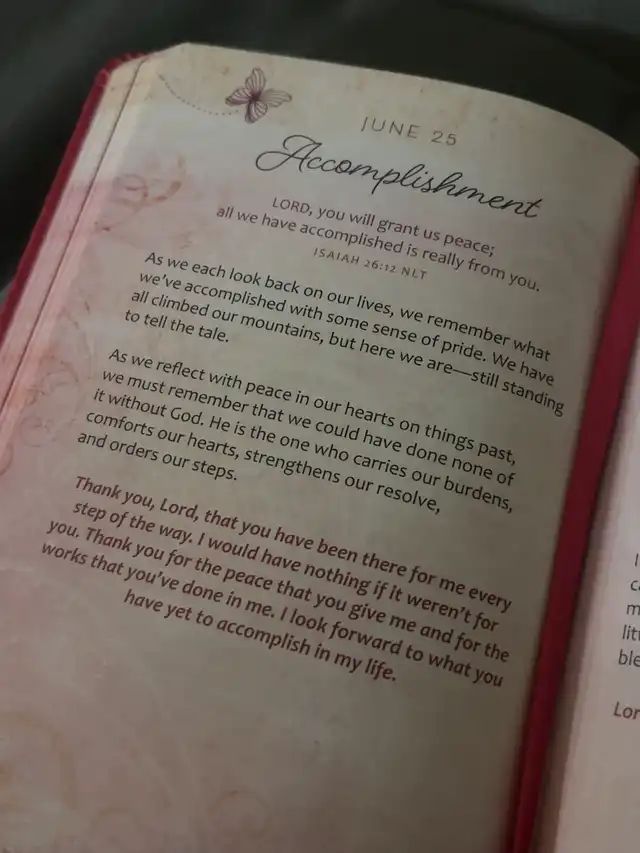 JUNE 25
Accomplishment
LORD, you will grant us peace;
all we have accomplished is really from you.
ISAIAH 26:12 NLT
As we each look back on our lives, we remember what
we've accomplished with some sense of pride. We have
all climbed our mountains, but here we are—still standing
to tell the tale.
As we reflect with peace in our hearts on things past,
we must remember that we could have done none of
it without God. He is the one who carries our burdens,
comforts our hearts, strengthens our resolve,
and orders our steps.
Thank you, Lord, that you have been there for me every
step of the way. I would have nothing if it weren't for
you. Thank you for the peace that you give me and for the
works that you've done in me. I look forward to what you
have yet to accomplish in my life.